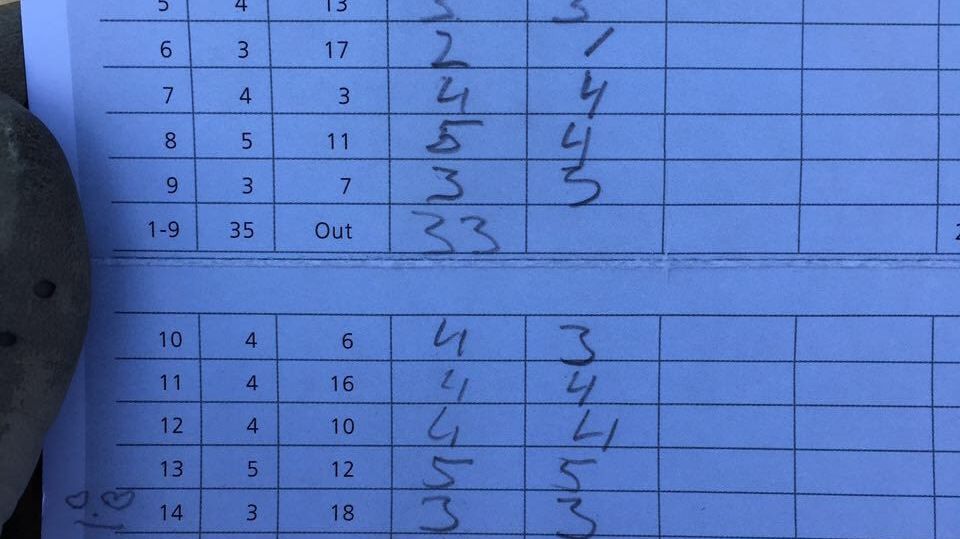 5 4 13 3 3
6 3 17 2 /
7 4 3 4 4
8 5 11 5 4
9 3 7 3 5
1-9 35 Out 33
10 4 6 4 3
11 4 16 4 4
12 4 10 4 4
13 5 12 5 5
14 3 18 3 3